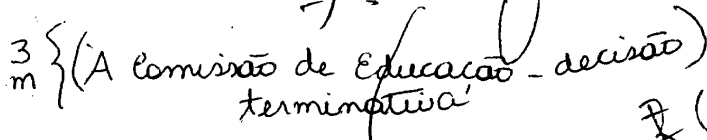 3 m {(A Comissão de Educação - decisão)
terminativa